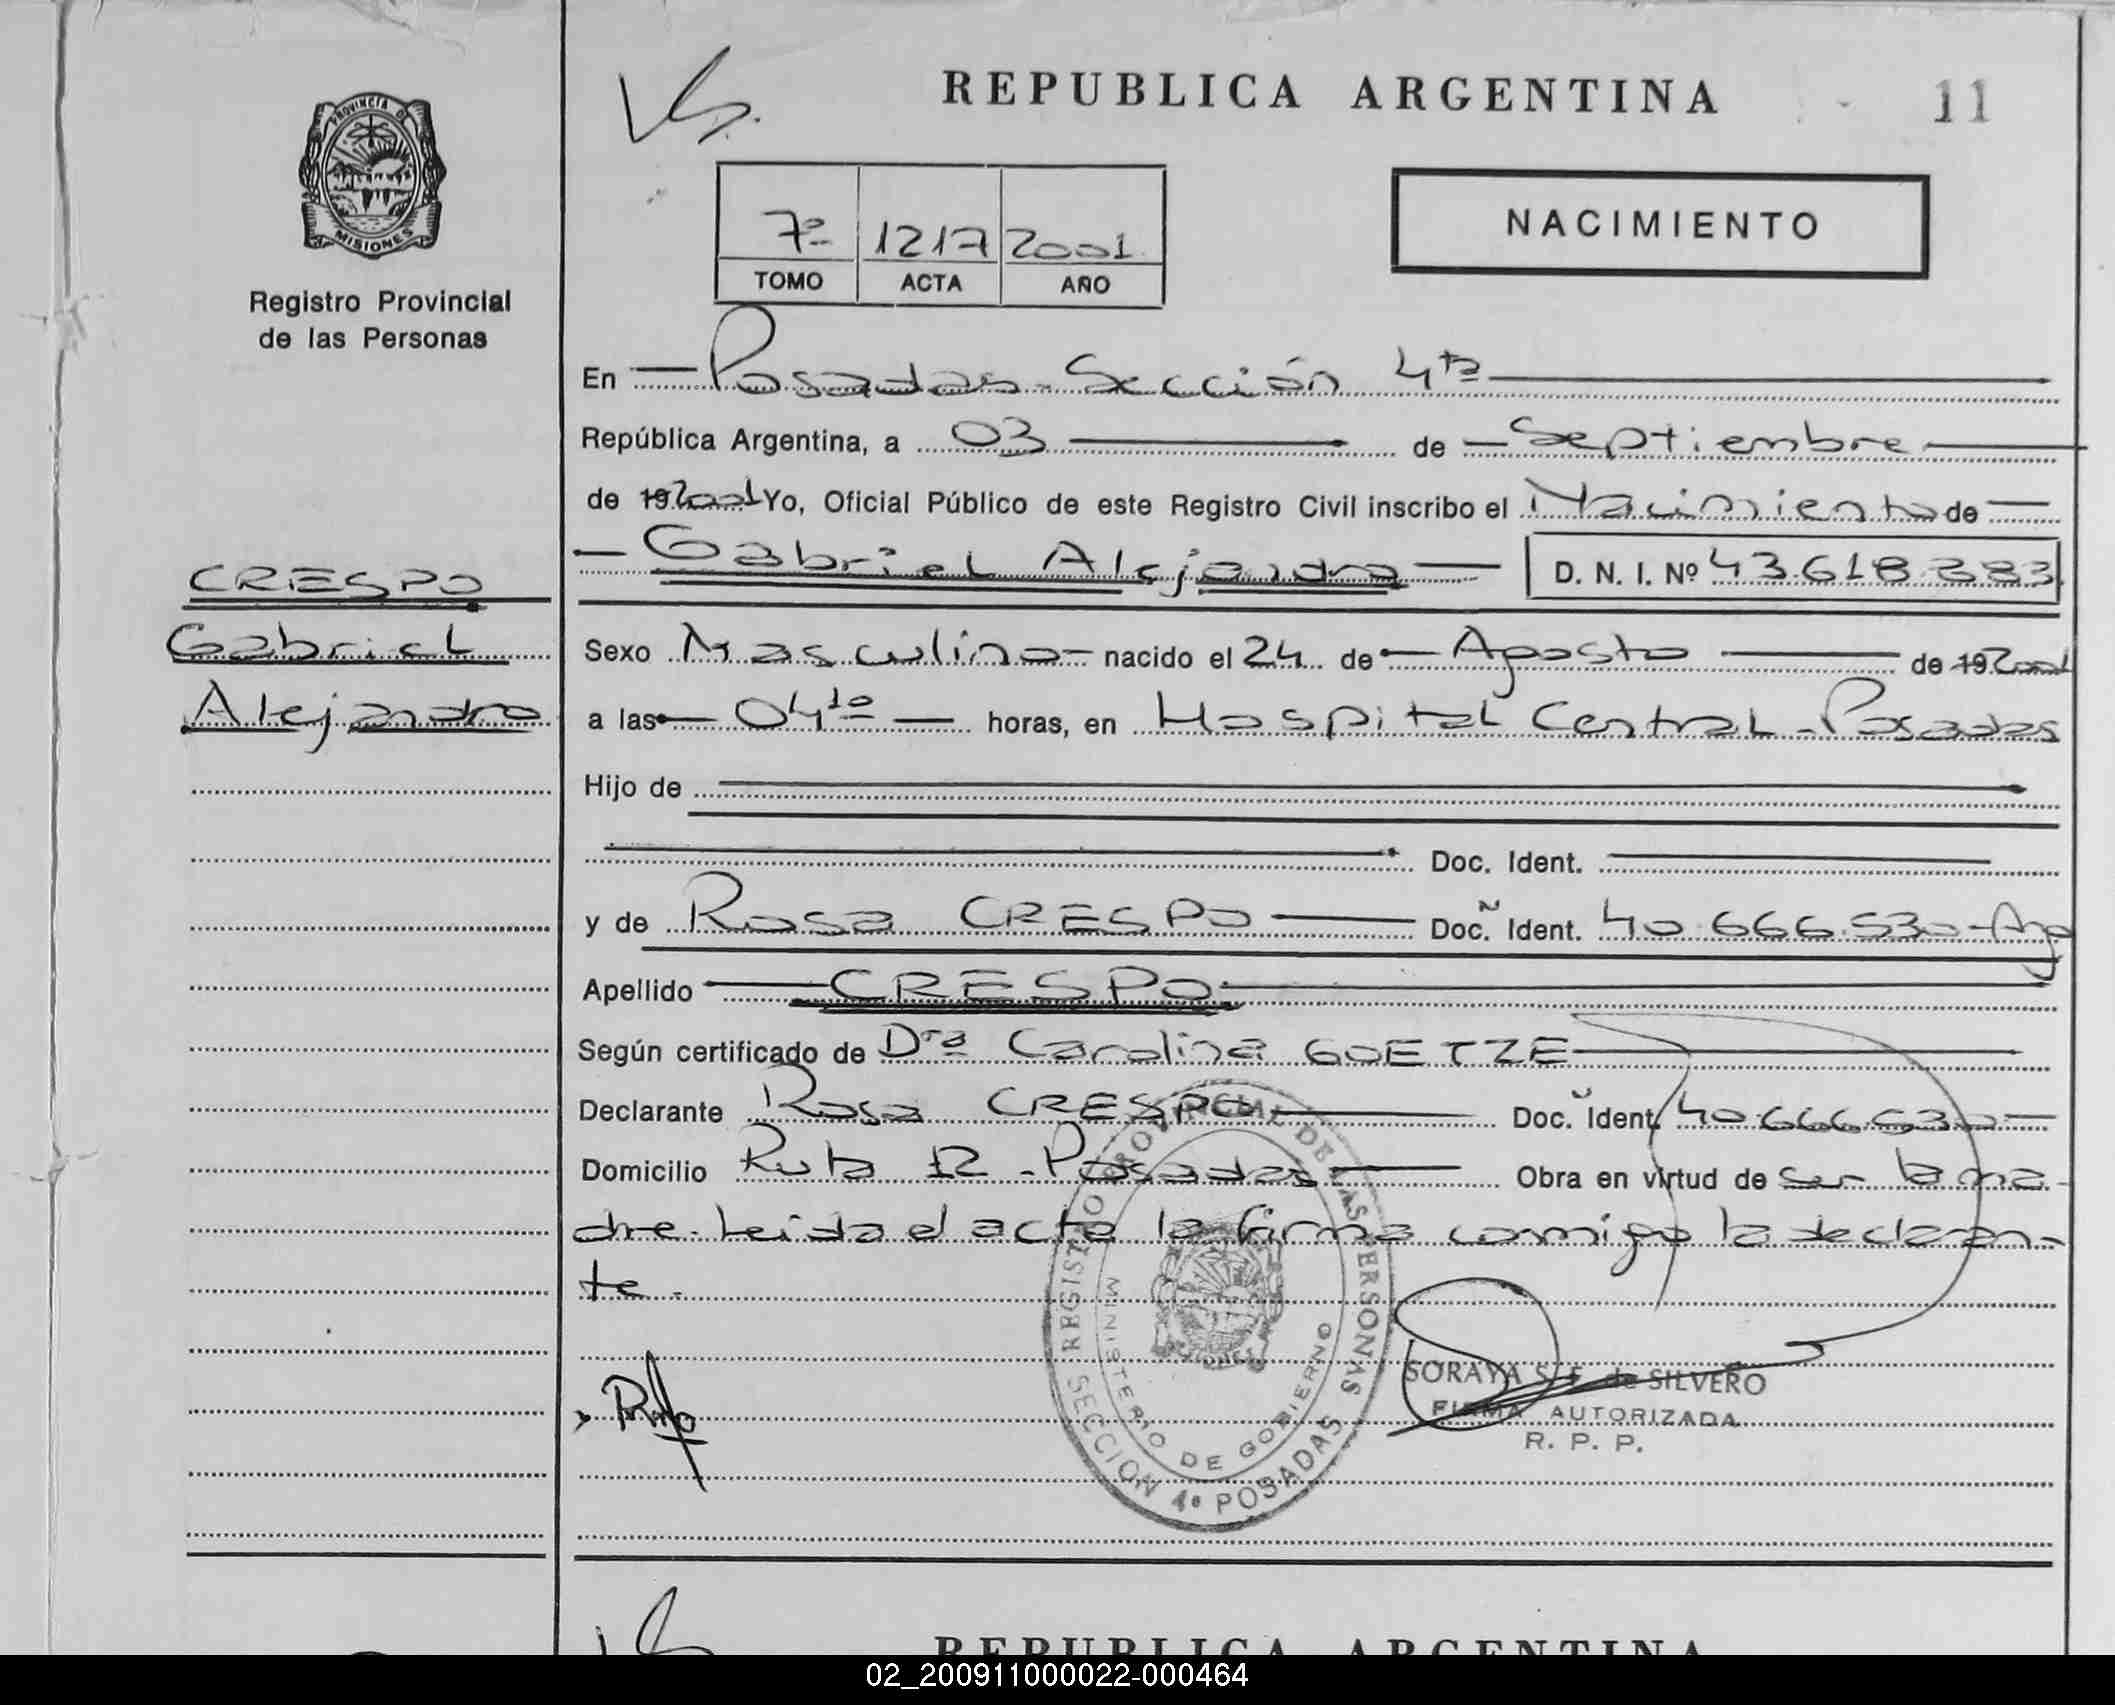 REPUBLICA ARGENTINA
11
PROVINCIA DE
MISIONES
Registro Provincial
de las Personas
7º 1217 2001
TOMO ACTA AÑO
NACIMIENTO
En Posadas - Sección 4ta
República Argentina, a 03 de Septiembre
de 19 2001 Yo, Oficial Público de este Registro Civil inscribo el Nacimiento de
Gabriel Alejandro D. N. I. Nº
CRESPO
Gabriel
Alejandro
Sexo Masculino nacido el 24 de Agosto de 19 2001
a las 04 10 horas, en Hospital Central - Posadas
Hijo de
Doc. Ident.
y de Rosa CRESPO Doc. Ident. 40.666.530 - Arg
Apellido CRESPO
Según certificado de Dra Carolina GOETZE
Declarante Rosa CRESPO Doc. Ident. 40.666.530
Domicilio Ruta 12 - Posadas Obra en virtud de ser la ma-
dre. Leida el acta la firma conmigo la declaran-
te.
REGISTRO PROVINCIAL DE LAS PERSONAS
MINISTERIO DE GOBIERNO
SECCION 4ª POSADAS
MISIONES
SORAYA S. F. de SILVERO
FIRMA AUTORIZADA
R. P. P.
REPUBLICA ARGENTINA
02_200911000022-000464